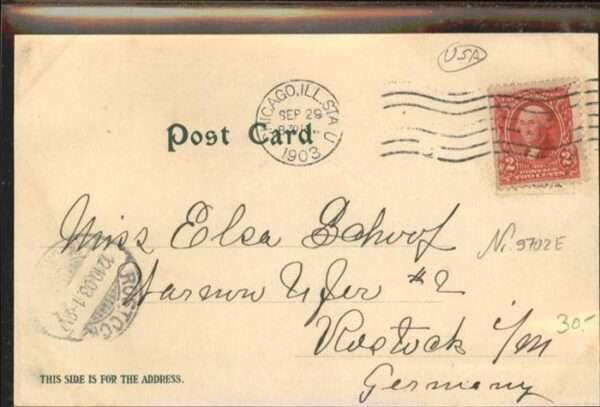 USA
CHICAGO, ILL. STA. U
SEP 29
1903
Post Card
2 2
POSTAGE
TWO CENTS
Miss Elsa Schoof
Ni. 9702E
12.10.03.1-
ROSTOC
Ufer #2
Rostock i/M
30.-
Germany
THIS SIDE IS FOR THE ADDRESS.